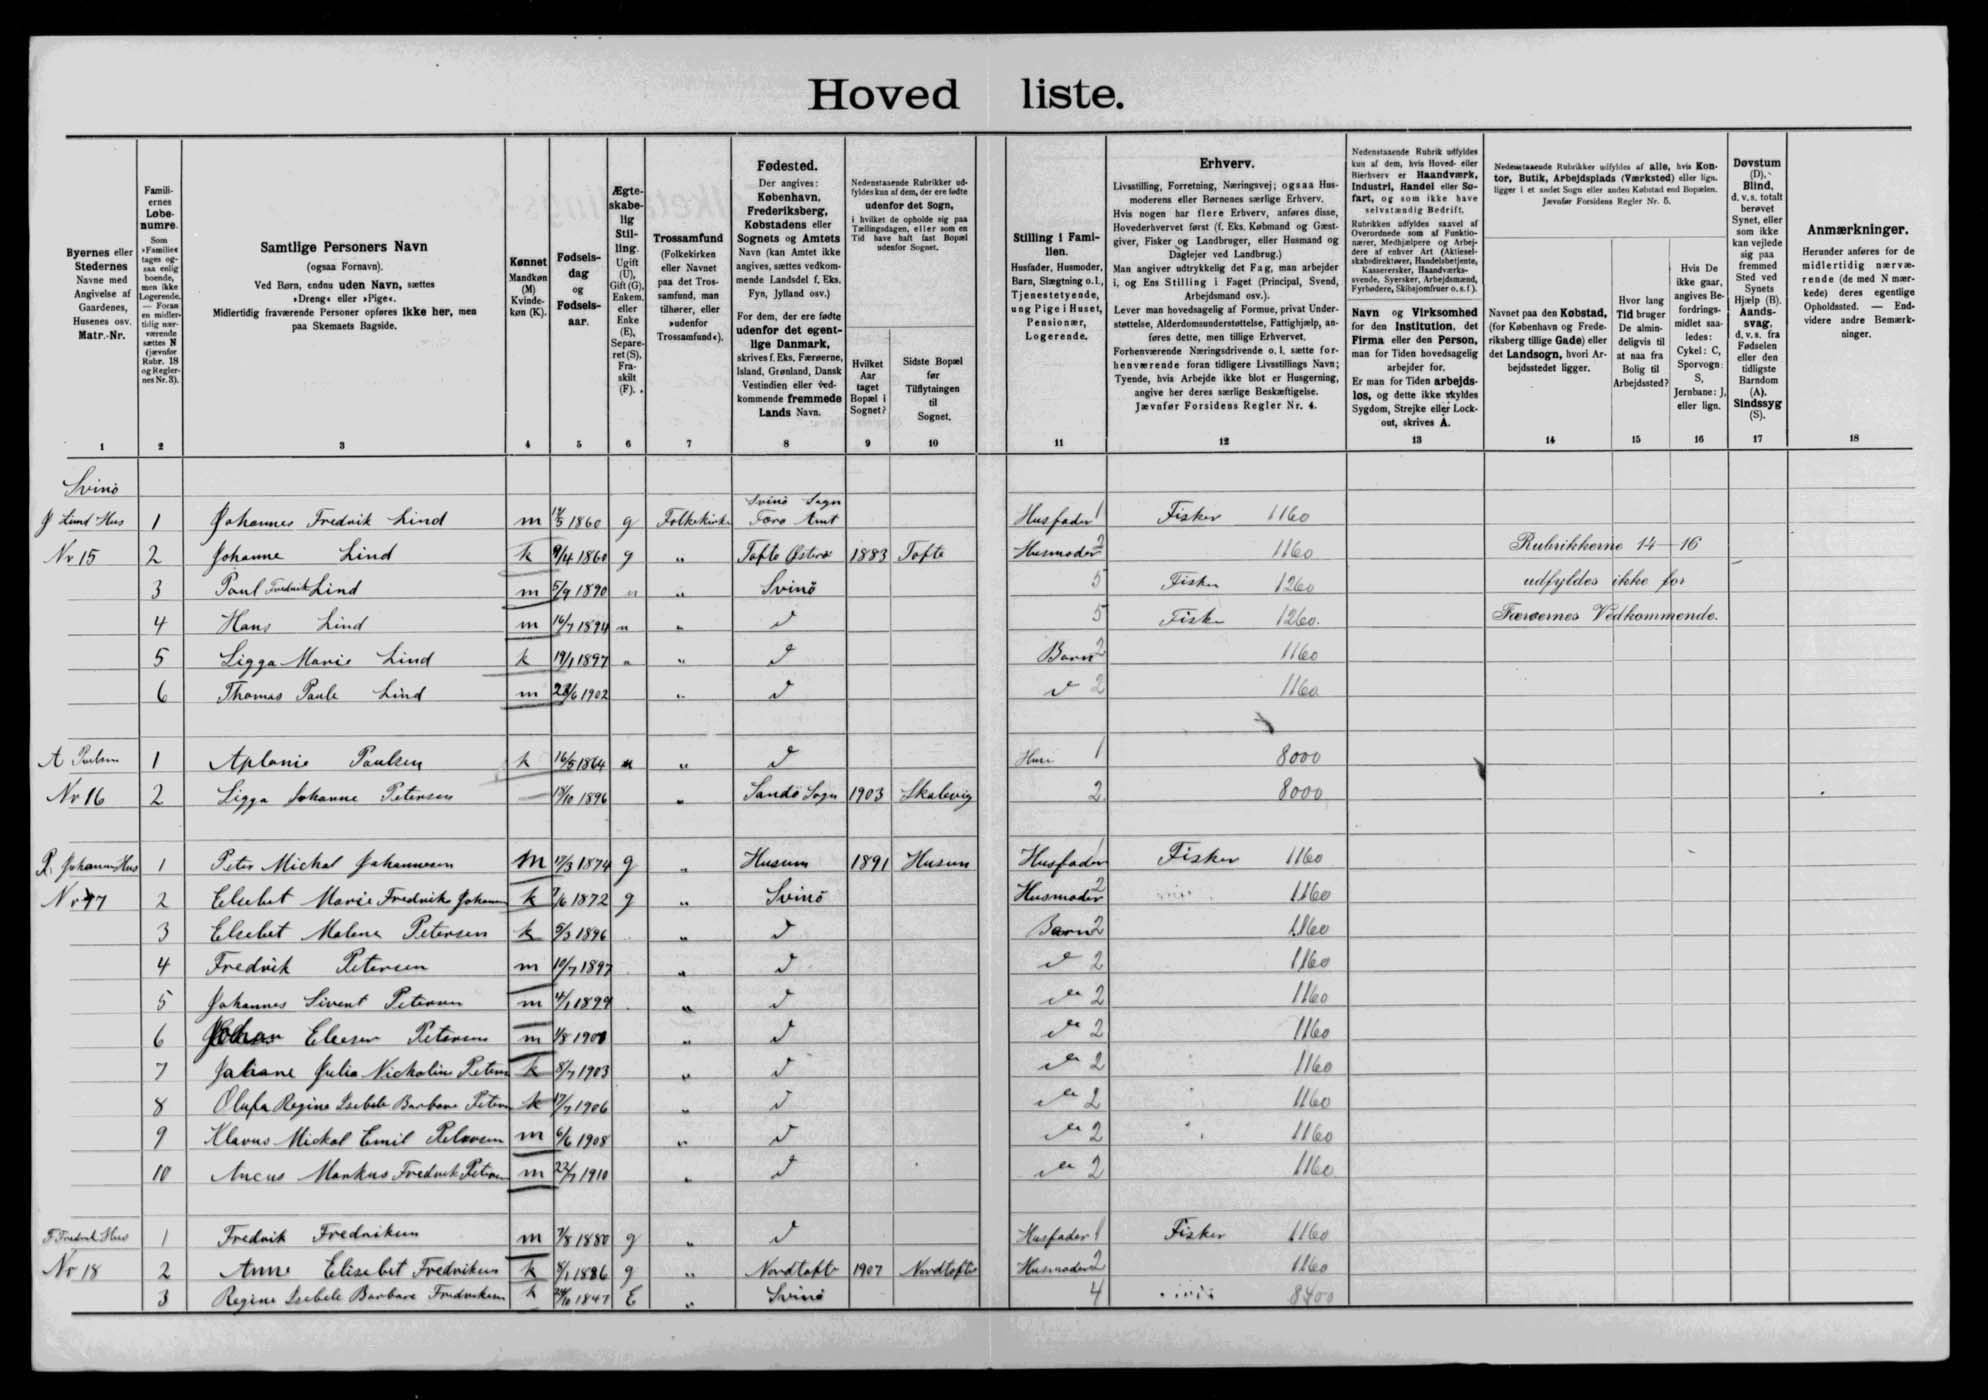 Hoved liste.
Byernes eller Stedernes Navne med Angivelse af Gaardenes, Husenes osv. Matr.-Nr.
Familiernes Løbenumre. Som »Familie« tages ogsaa enlig boende, men ikke Logerende. — Foran en midlertidig nærværende sættes N (jævnfør Rubr. 18 og Reglernes Nr. 3).
Samtlige Personers Navn
(ogsaa Fornavn).
Ved Børn, endnu uden Navn, sættes »Dreng« eller »Pige«.
Midlertidig fraværende Personer opføres ikke her, men paa Skemaets Bagside.
Kønnet Mandkøn (M) Kvindekøn (K).
Fødselsdag og Fødselsaar.
Ægteskabelig Stilling. Ugift (U), Gift (G), Enkem. eller Enke (E), Separeret (S), Fraskilt (F).
Trossamfund (Folkekirken eller Navnet paa det Trossamfund, man tilhører, eller »udenfor Trossamfund«).
Fødested.
Der angives: København, Frederiksberg, Købstadens eller Sognets og Amtets Navn (kan Amtet ikke angives, sættes vedkommende Landsdel f. Eks. Fyn, Jylland osv.)
For dem, der ere fødte udenfor det egentlige Danmark, skrives f. Eks. Færøerne, Island, Grønland, Dansk Vestindien eller vedkommende fremmede Lands Navn.
Nedenstaaende Rubrikker udfyldes kun af dem, der ere fødte udenfor det Sogn, i hvilket de opholde sig paa Tællingsdagen, eller som en Tid have haft fast Bopæl udenfor Sognet.
Hvilket Aar taget Bopæl i Sognet?
Sidste Bopæl før Tilflytningen til Sognet.
Stilling i Familien.
Husfader, Husmoder, Barn, Slægtning o. l., Tjenestetyende, ung Pige i Huset, Pensionær, Logerende.
Erhverv.
Livsstilling, Forretning, Næringsvej; ogsaa Husmoderens eller Børnenes særlige Erhverv.
Hvis nogen har flere Erhverv, anføres disse, Hovederhvervet først (f. Eks. Købmand og Gæstgiver, Fisker og Landbruger, eller Husmand og Daglejer ved Landbrug.)
Man angiver udtrykkelig det Fag, man arbejder i, og Ens Stilling i Faget (Principal, Svend, Arbejdsmand osv.).
Lever man hovedsagelig af Formue, privat Understøttelse, Alderdomsunderstøttelse, Fattighjælp, anføres dette, men tillige Erhvervet.
Forhenværende Næringsdrivende o. l. sætte forhenværende foran tidligere Livsstillings Navn; Tyende, hvis Arbejde ikke blot er Husgerning, angive her deres særlige Beskæftigelse.
Jævnfør Forsidens Regler Nr. 4.
Nedenstaaende Rubrik udfyldes kun af dem, hvis Hoved- eller Bierhverv er Haandværk, Industri, Handel eller Søfart, og som ikke have selvstændig Bedrift.
Rubrikken udfyldes saavel af Overordnede som af Funktionærer, Medhjælpere og Arbejdere af enhver Art (Aktieselskabsdirektører, Handelsbetjente, Kasserersker, Haandværkssvende, Syersker, Arbejdsmænd, Fyrbødere, Skibsjomfruer o. s. f.).
Navn og Virksomhed for den Institution, det Firma eller den Person, man for Tiden hovedsagelig arbejder for.
Er man for Tiden arbejdsløs, og dette ikke skyldes Sygdom, Strejke eller Lockout, skrives A.
Nedenstaaende Rubrikker udfyldes af alle, hvis Kontor, Butik, Arbejdsplads (Værksted) eller lign. ligger i et andet Sogn eller anden Købstad end Bopælen. Jævnfør Forsidens Regler Nr. 5.
Navnet paa den Købstad, (for København og Frederiksberg tillige Gade) eller det Landsogn, hvori Arbejdsstedet ligger.
Hvor lang Tid bruger De almindeligvis til at naa fra Bolig til Arbejdssted?
Hvis De ikke gaar, angives Befordringsmidlet saaledes: Cykel: C, Sporvogn: S, Jernbane: J, eller lign.
Døvstum (D). Blind, d. v. s. totalt berøvet Synet, eller som ikke kan vejlede sig paa fremmed Sted ved Synets Hjælp (B). Aandssvag, d. v. s. fra Fødselen eller den tidligste Barndom (A). Sindssyg (S).
Anmærkninger.
Herunder anføres for de midlertidig nærværende (de med N mærkede) deres egentlige Opholdssted. — Endvidere andre Bemærkninger.
1 2 3 4 5 6 7 8 9 10 11 12 13 14 15 16 17 18
Svinö
J Lind Hus 1 Johannes Fredrik Lind m 14/5 1860 g Folkekirke Svinö Sogn Færö Amt Husfader 1 Fisker 1160
Nr 15 2 Johanne Lind k 9/4 1860 g „ Tofte Österö 1883 Tofte Husmoder 2 1160 Rubrikkerne 14–16
3 Poul Fredrik Lind m 5/9 1890 u „ Svinö 5 Fisker 1260 udfyldes ikke for
4 Hans Lind m 16/7 1894 u „ d 5 Fisker 1260. Færøernes Vedkommende.
5 Ligga Marie Lind k 19/1 1897 „ „ d Barn 2 1160
6 Thomas Paule Lind m 28/6 1902 „ d d 2 1160
A Poulsen 1 Aplonie Poulsen k 16/5 1864 u „ d Husm 1 8000
Nr 16 2 Ligga Johanne Petersen 18/10 1896 „ Sandö Sogn 1903 Skalevig 2 8000
P. Johannes Hus 1 Peter Mickal Johannesen m 17/3 1874 g „ Husum 1891 Husum Husfader 1 Fisker 1160
Nr 17 2 Elsebet Marie Fredrikke Johannes k /6 1872 g „ Svinö Husmoder 2 1160
3 Elsebet Malene Petersen k 5/3 1896 „ d Barn 2 1160
4 Fredrik Petersen m 10/7 1897 „ d d 2 1160
5 Johannes Sivert Petersen m 4/1 1899 „ d do 2 1160
6 Johan Elieser Petersen m 1/8 1901 „ d do 2 1160
7 Johane Julia Nickoline Peters k 8/7 1903 „ d do 2 1160
8 Olufa Regine Isebele Barbara Peters k 17/7 1906 „ d do 2 1160
9 Klavus Mickal Emil Petersen m 6/6 1908 „ d do 2 1160
10 Markus Fredrik Petersen m 22/7 1910 „ d do 2 1160
F Fredrik Hus 1 Fredrik Fredriksen m 7/8 1880 g „ d Husfader 1 Fisker 1160
Nr 18 2 Anne Elisebet Fredriksen k 8/1 1886 g „ Nordtofte 1907 Nordtofte Husmoder 2 1160
3 Regine Isebele Barbare Fredriksen k 24/6 1847 E „ Svinö 4 8400